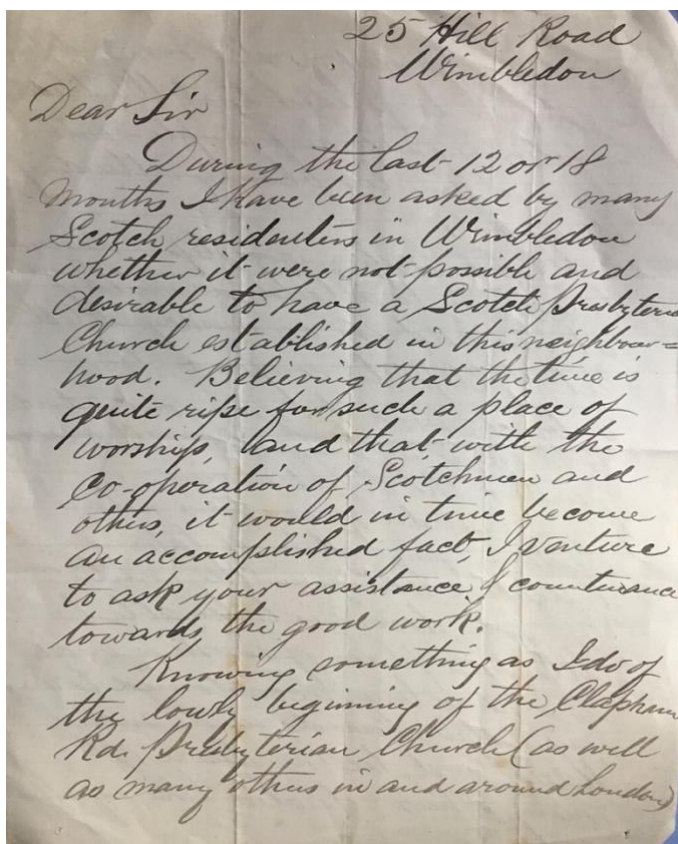 25 Hill Road
Wimbledon
Dear Sir
During the last 12 or 18
months I have been asked by many
Scotch residenters in Wimbledon
whether it were not possible and
desirable to have a Scotch Presbyterian
Church established in this neighbour=
hood. Believing that the time is
quite ripe for such a place of
worship, and that with the
co-operation of Scotchmen and
others, it would in time become
an accomplished fact, I venture
to ask your assistance & countenance
towards the good work.
Knowing something as I do of
the lowly beginning of the Clapham
Rd. Presbyterian Church (as well
as many others in and around London)